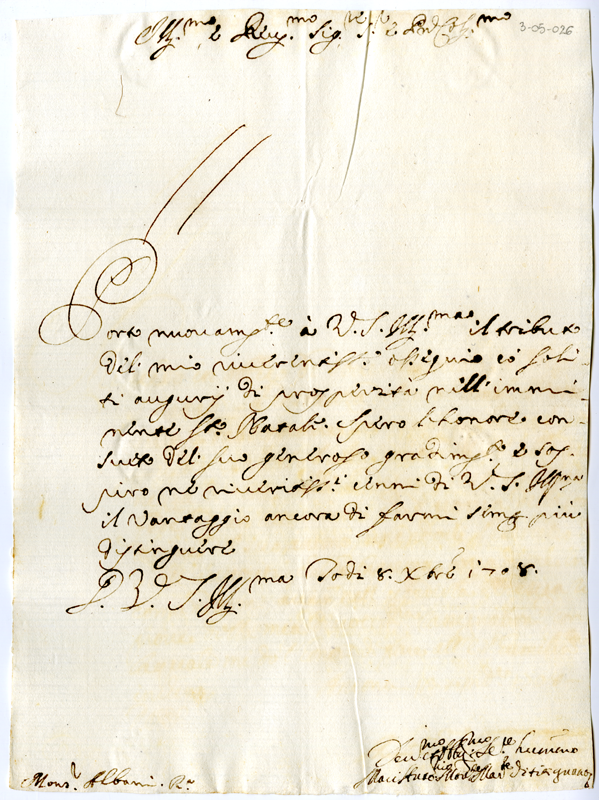 Ill.mo e Rev.mo Sig.re S.r e P.ron Col.mo
3-05-026
Porto nuovam.te à V. S. Ill.ma il tributo
del mio riverentiss.o ossequio co' soli-
ti augurij di prosperità nell'immi-
nente S.to Natale. Spero l'honore con-
sueto del suo generoso gradim.to e sos-
piro ne riveritiss.i cenni di V. S. Ill.ma
il vantaggio ancora di farmi semp. più
distinguere
D. V. S. Ill.ma Todi 8. Xbre 1708.
Mons.r Albani. R.a